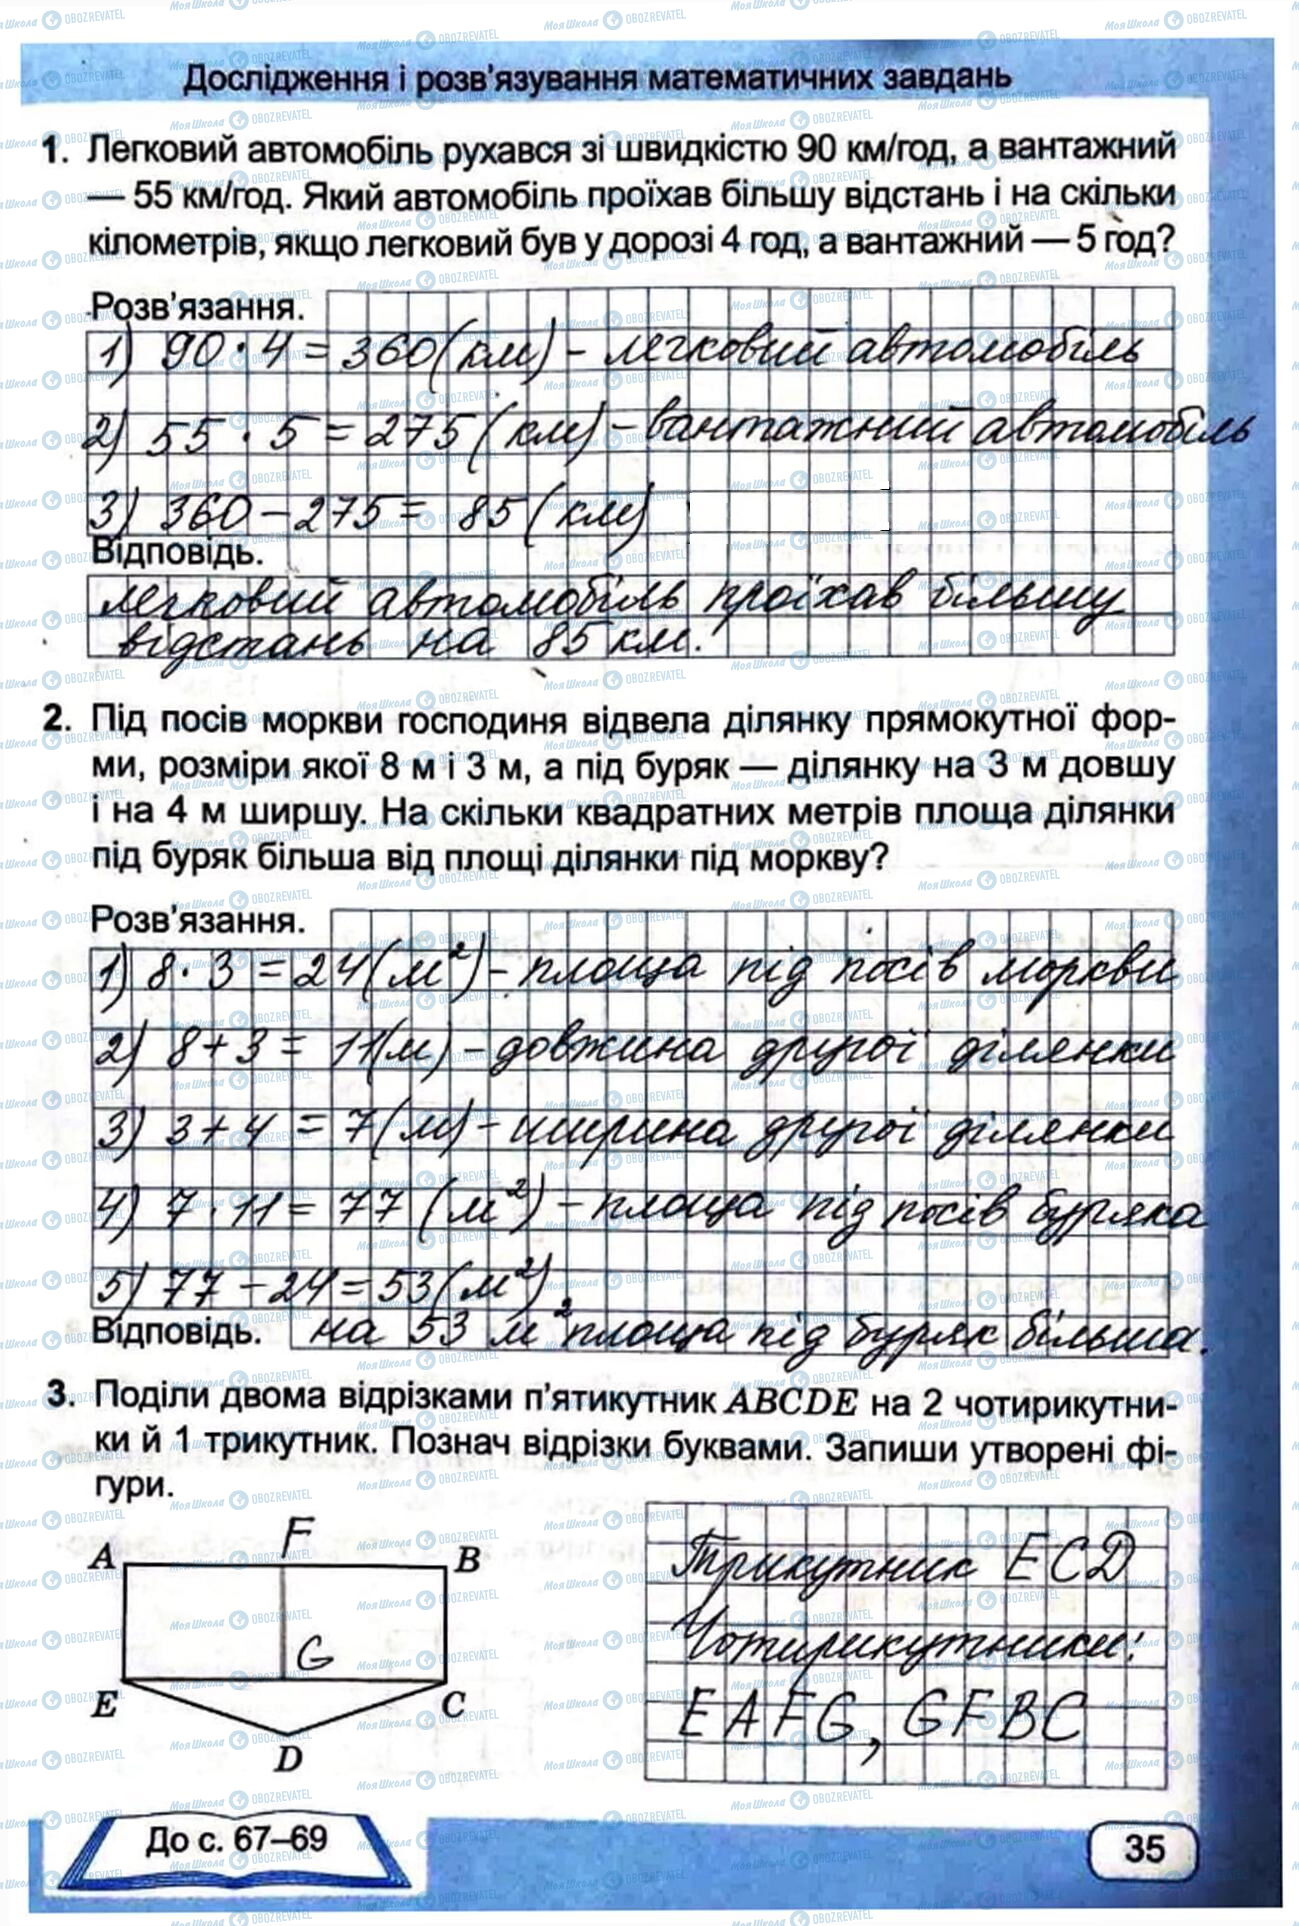 Дослідження і розв'язування математичних завдань
1. Легковий автомобіль рухався зі швидкістю 90 км/год, а вантажний
— 55 км/год. Який автомобіль проїхав більшу відстань і на скільки
кілометрів, якщо легковий був у дорозі 4 год, а вантажний — 5 год?
Розв'язання.
1) 90 · 4 = 360 (км) - легковий автомобіль
2) 55 · 5 = 275 (км) - вантажний автомобіль
3) 360 - 275 = 85 (км)
Відповідь.
легковий автомобіль проїхав більшу
відстань на 85 км.
2. Під посів моркви господиня відвела ділянку прямокутної фор-
ми, розміри якої 8 м і 3 м, а під буряк — ділянку на 3 м довшу
і на 4 м ширшу. На скільки квадратних метрів площа ділянки
під буряк більша від площі ділянки під моркву?
Розв'язання.
1) 8 · 3 = 24 (м²) - площа під посів моркви
2) 8 + 3 = 11 (м) - довжина другої ділянки
3) 3 + 4 = 7 (м) - ширина другої ділянки
4) 7 · 11 = 77 (м²) - площа під посів буряка
5) 77 - 24 = 53 (м²)
Відповідь. на 53 м² площа під буряк більша.
3. Поділи двома відрізками п'ятикутник ABCDE на 2 чотирикутни-
ки й 1 трикутник. Познач відрізки буквами. Запиши утворені фі-
гури.
F
A B
G
E C
D
Трикутник ECD
Чотирикутники:
EAFG, GFBC
До с. 67–69
35
МояШкола OBOZREVATEL